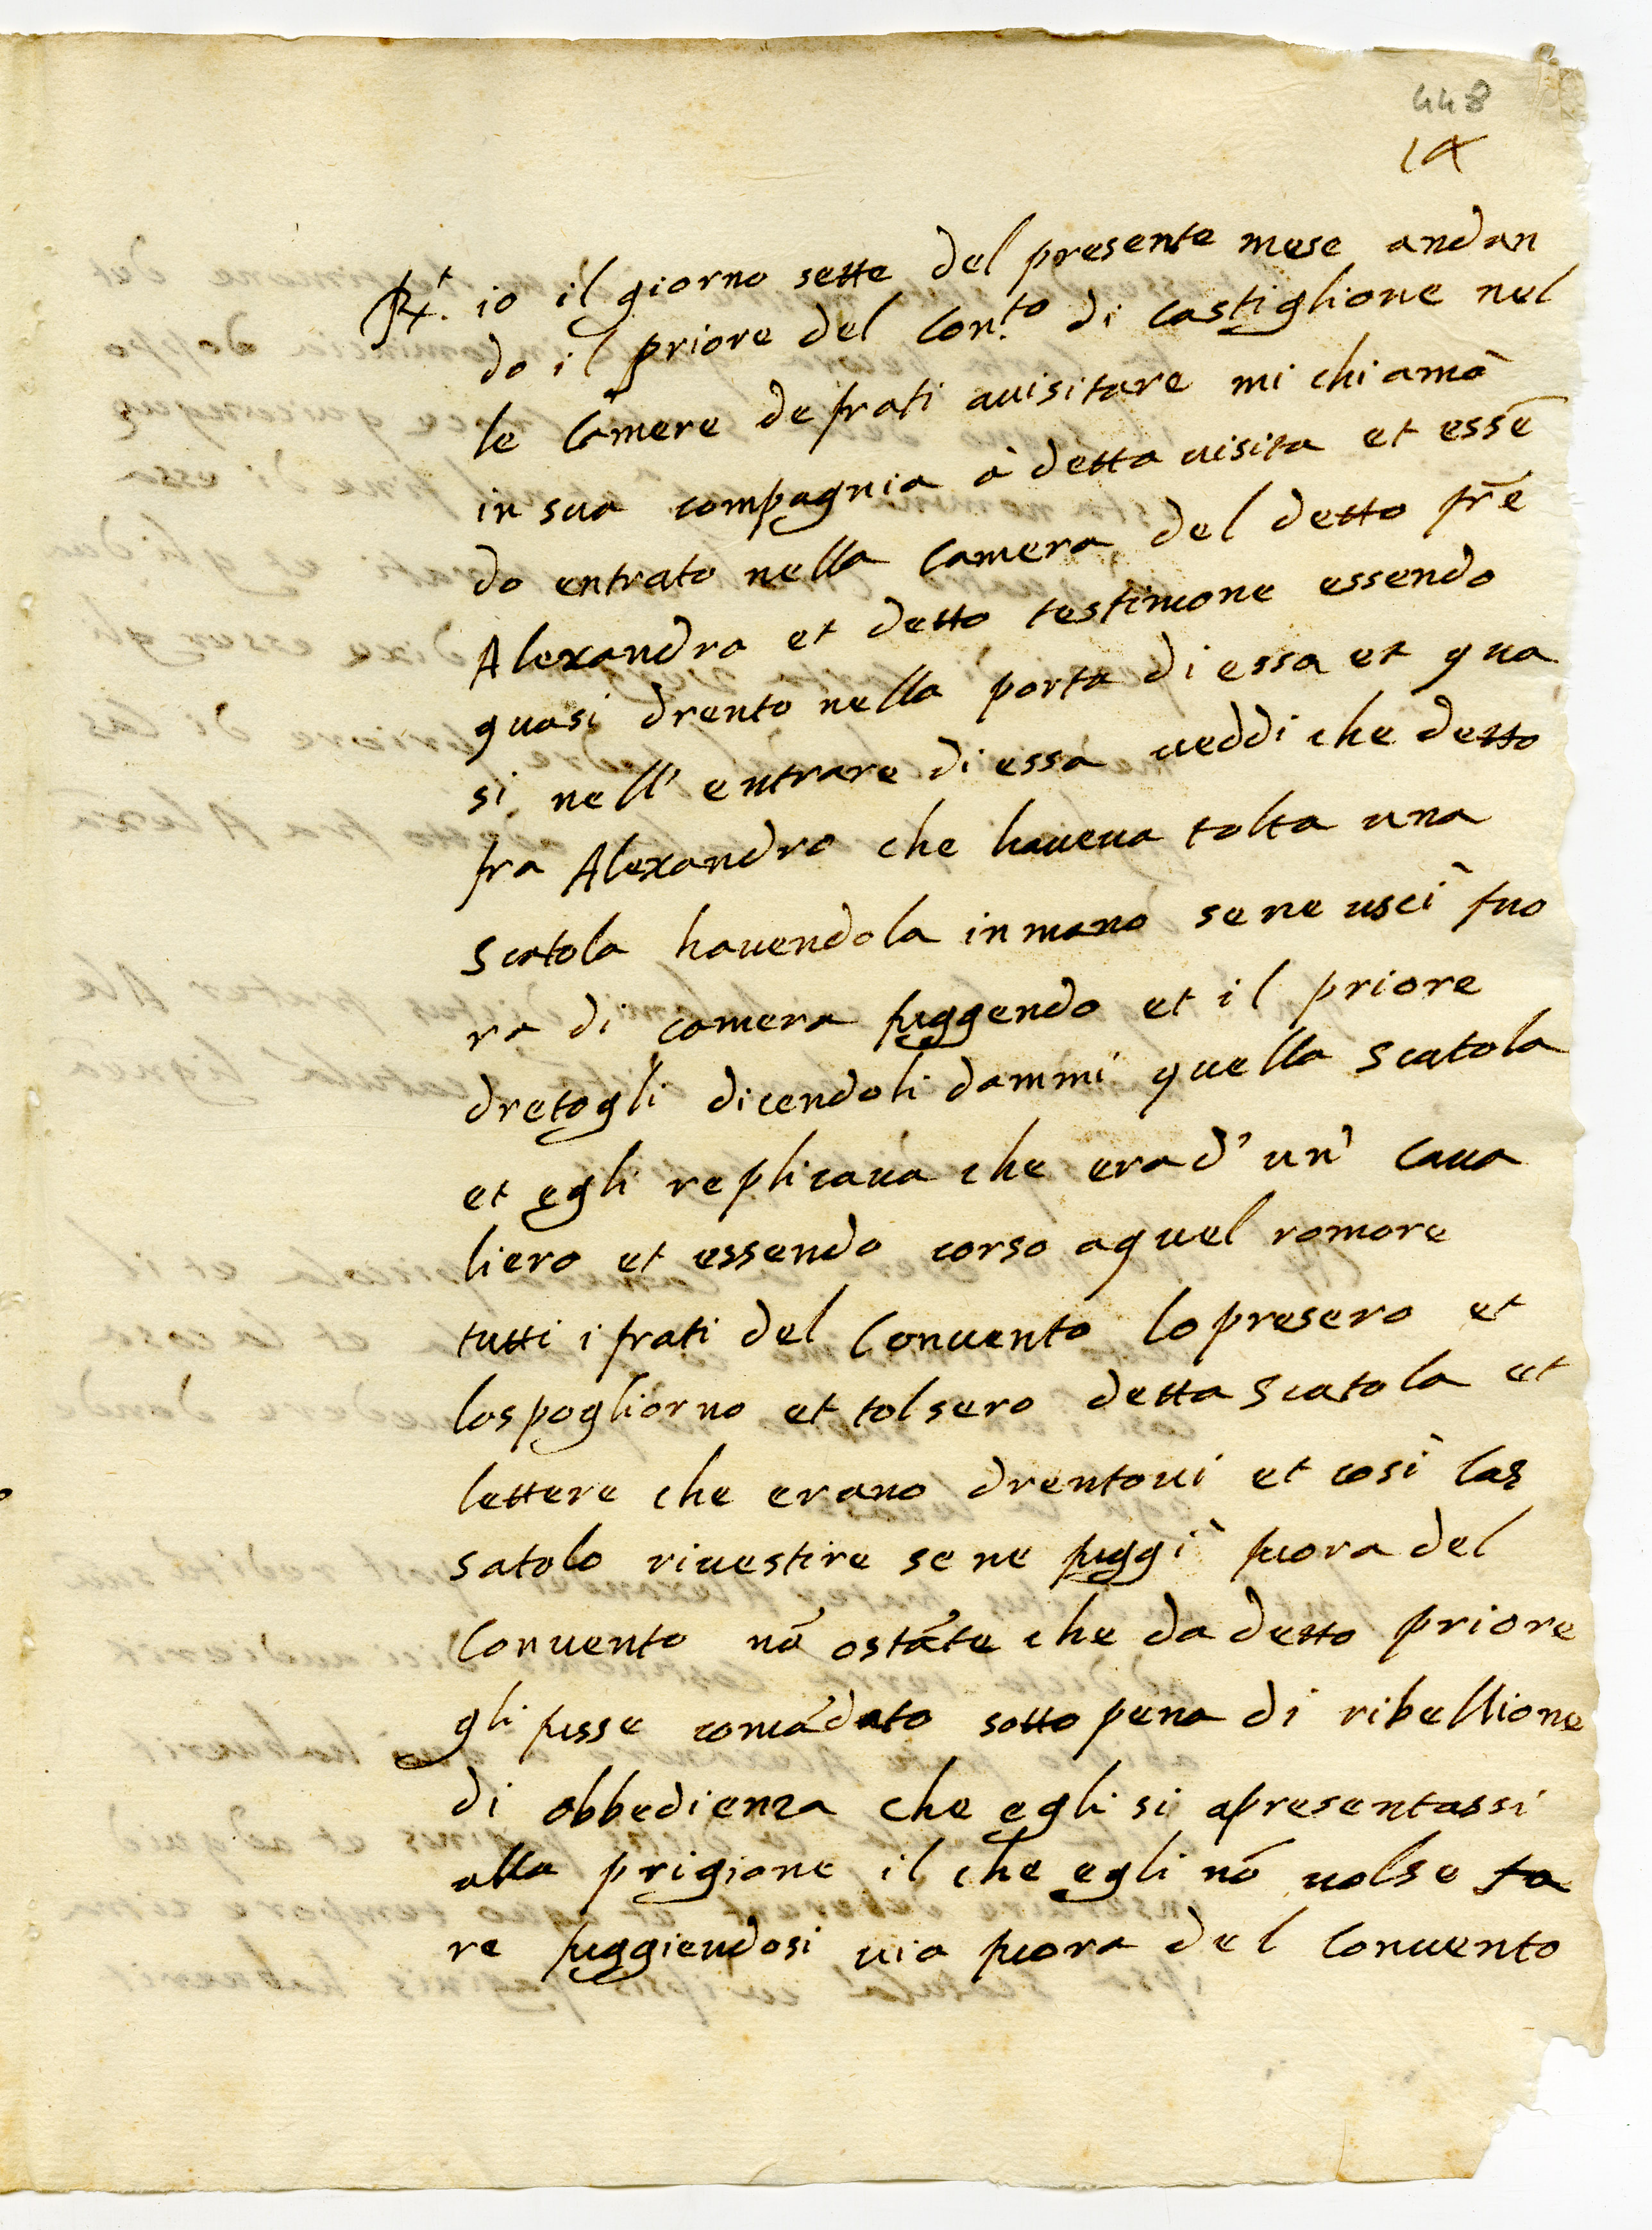 448
14
Rx.t io il giorno sette del presente mese andan
do il priore del Con.to di castiglione nel
le Camere de frati auisitare mi chiamò
in sua compagnia à detta uisita et essē
do entrato nella Camera del detto frē
Alexandro et detto testimone essendo
quasi drento nella porta di essa et qua
si nell' entrare di essa ueddi che detto
fra Alexandro che haueua tolta una
scatola hauendola in mano se ne uscì fuo
ra di camera fuggendo et il priore
dretogli dicendoli dammi quella scatola
et egli replicaua che era d' un' Caua
liero et essendo corso a quel romore
tutti i frati del Conuento lo presero et
lo spogliorno et tolsero detta scatola et
lettere che erano drentoui et così las
satolo riuestire se ne fuggì fuora del
Conuento nō ostāte che da detto priore
gli fusse comādato sotto pena di ribellione
di obbedienza che egli si apresentassi
alla prigione il che egli nō uolse fa
re fuggiendosi uia fuora del Conuento